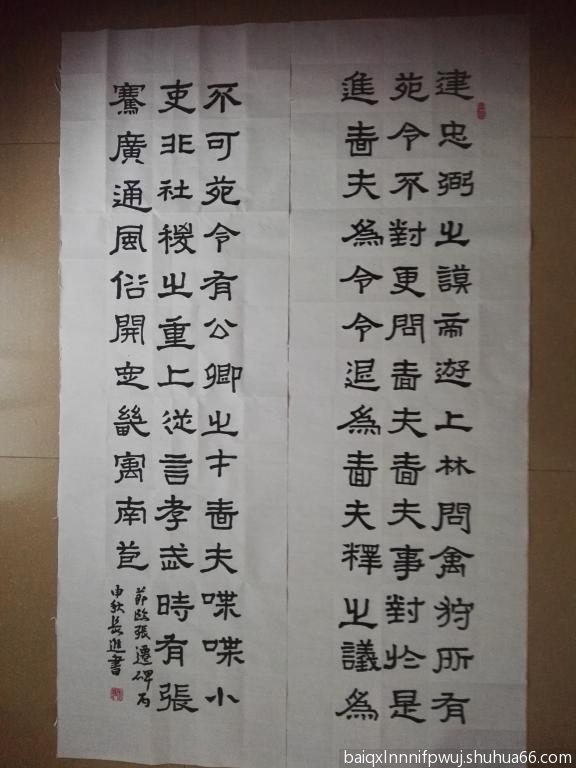 建忠弼之謨帝遊上林問禽狩所有
苑令不對更問嗇夫嗇夫事對於是
進嗇夫為令令退為嗇夫釋之議為
不可苑令有公卿之才嗇夫喋喋小
吏非社稷之重上從言孝武時有張
騫廣通風俗開定畿寓南苞
節臨張遷碑丙
申秋長進書
baiqxlnnnifpwuj.shuhua66.com